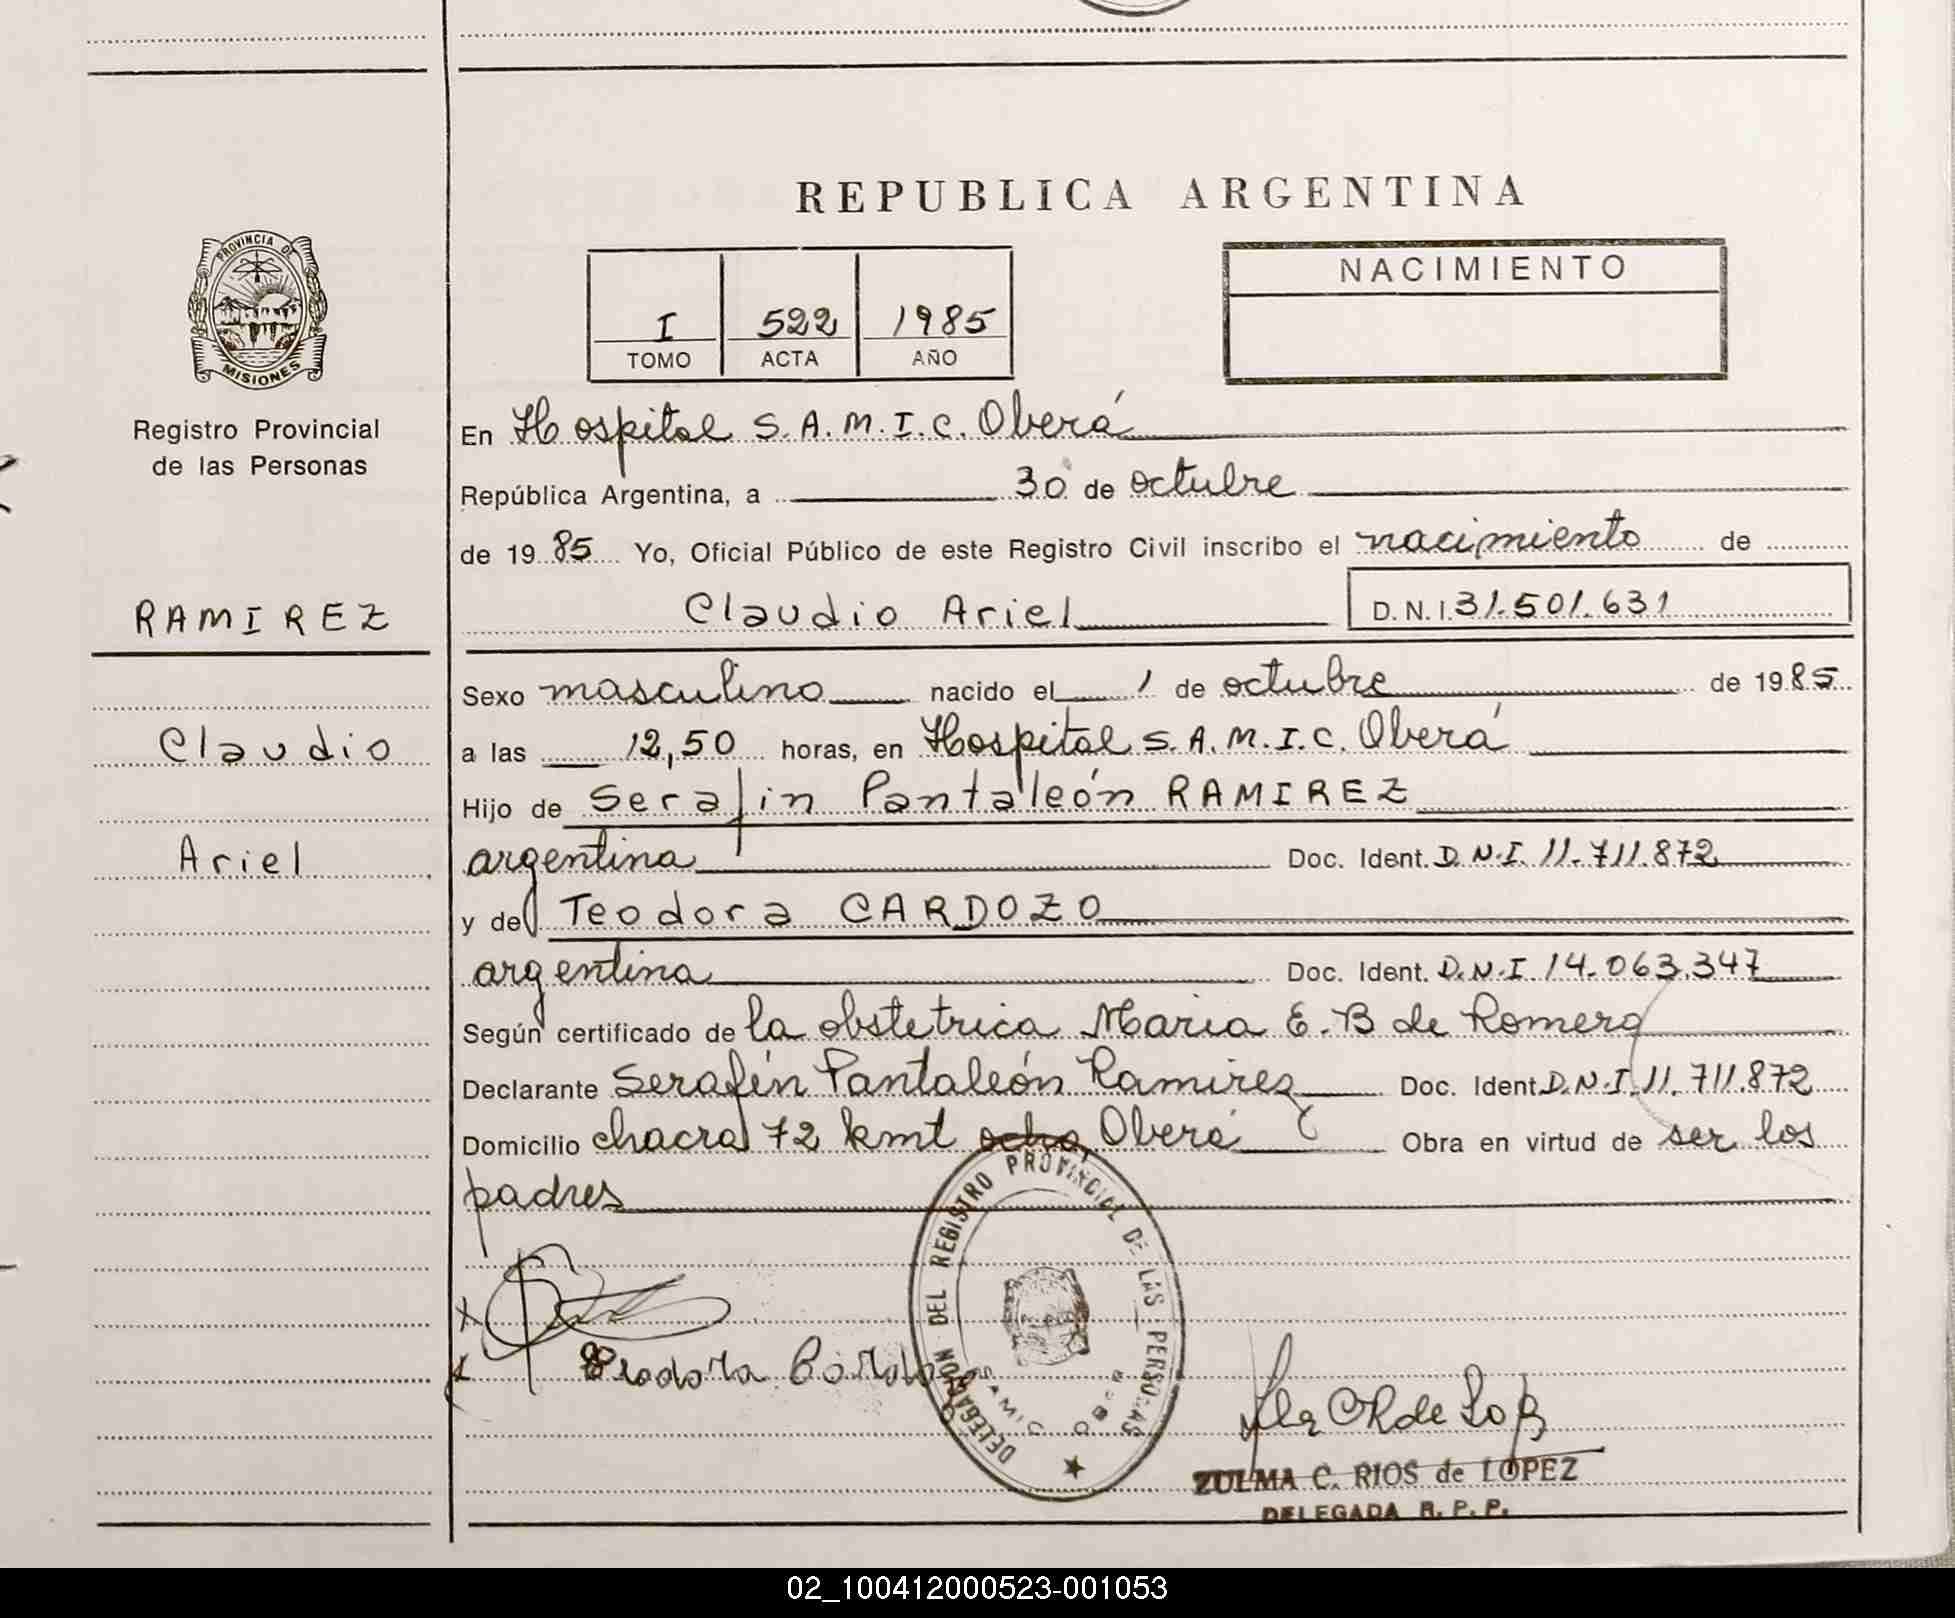 REPUBLICA ARGENTINA
PROVINCIA DE
MISIONES
Registro Provincial
de las Personas
I 522 1985
TOMO ACTA AÑO
NACIMIENTO
En Hospital S.A.M.I.C. Oberá
República Argentina, a 30 de octubre
de 1985 Yo, Oficial Público de este Registro Civil inscribo el nacimiento de
RAMIREZ
Claudio Ariel D.N.I. 31.501.631
Sexo masculino nacido el 1 de octubre de 1985
Claudio
a las 12,50 horas, en Hospital S.A.M.I.C. Oberá
Hijo de Serafin Pantaleón RAMIREZ
Ariel
argentina Doc. Ident. D.N.I. 11.711.872
y de Teodora CARDOZO
argentina Doc. Ident. D.N.I 14.063.347
Según certificado de la obstetrica Maria E. B de Romero
Declarante Serafín Pantaleón Ramirez Doc. Ident. D.N.I. 11.711.872
Domicilio chacra 72 kmt ocho Oberá Obra en virtud de ser los
padres
DELEGACION DEL REGISTRO PROVINCIAL DE LAS PERSONAS
SAMIC
Teodora Cardozo
ZULMA C. RIOS de LOPEZ
DELEGADA R. P. P.
02_100412000523-001053